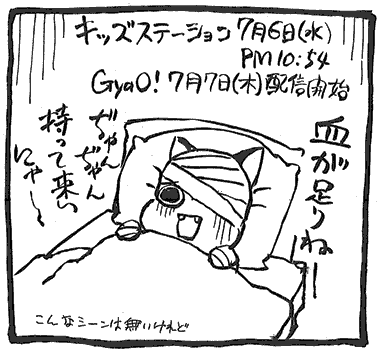 キッズステーション7月6日(水)
PM10:54
GyaO!7月7日(木)配信開始
血が足りねーー
ぢゃん
ぢゃん
持って来い
にゃ〜〜
こんなシーンは無いけれど